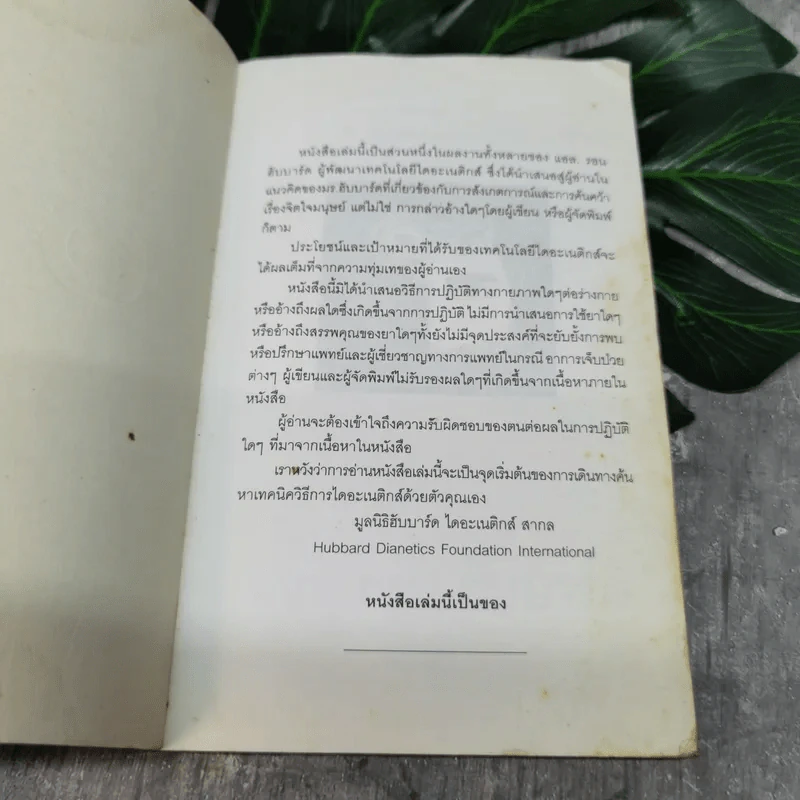 หนังสือเล่มนี้เป็นส่วนหนึ่งในผลงานทั้งหลายของ แอล. รอน
ฮับบาร์ด ผู้พัฒนาเทคโนโลยีไดอะเนติกส์ ซึ่งได้นำเสนอสู่ผู้อ่านใน
แนวคิดของมร.ฮับบาร์ดที่เกี่ยวข้องกับการสังเกตการณ์และการค้นคว้า
เรื่องจิตใจมนุษย์ แต่ไม่ใช่ การกล่าวอ้างใดๆโดยผู้เขียน หรือผู้จัดพิมพ์
ก็ตาม
ประโยชน์และเป้าหมายที่ได้รับของเทคโนโลยีไดอะเนติกส์จะ
ได้ผลเต็มที่จากความทุ่มเทของผู้อ่านเอง
หนังสือนี้มิได้นำเสนอวิธีการปฏิบัติทางกายภาพใดๆต่อร่างกาย
หรืออ้างถึงผลใดซึ่งเกิดขึ้นจากการปฏิบัติ ไม่มีการนำเสนอการใช้ยาใดๆ
หรืออ้างถึงสรรพคุณของยาใดๆทั้งยังไม่มีจุดประสงค์ที่จะยับยั้งการพบ
หรือปรึกษาแพทย์และผู้เชี่ยวชาญทางการแพทย์ในกรณี อาการเจ็บป่วย
ต่างๆ ผู้เขียนและผู้จัดพิมพ์ไม่รับรองผลใดๆที่เกิดขึ้นจากเนื้อหาภายใน
หนังสือ
ผู้อ่านจะต้องเข้าใจถึงความรับผิดชอบของตนต่อผลในการปฏิบัติ
ใดๆ ที่มาจากเนื้อหาในหนังสือ
เราหวังว่าการอ่านหนังสือเล่มนี้จะเป็นจุดเริ่มต้นของการเดินทางค้น
หาเทคนิควิธีการไดอะเนติกส์ด้วยตัวคุณเอง
มูลนิธิฮับบาร์ด ไดอะเนติกส์ สากล
Hubbard Dianetics Foundation International
หนังสือเล่มนี้เป็นของ